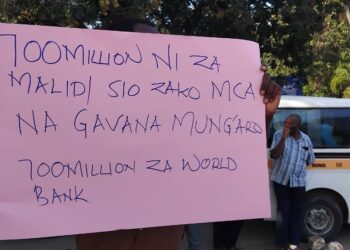 700MILLION NI ZA
MALIDI SIO ZAKO MCA
NA GAVANA MUNG'ARO
700MILLION ZA WORLD
BANK